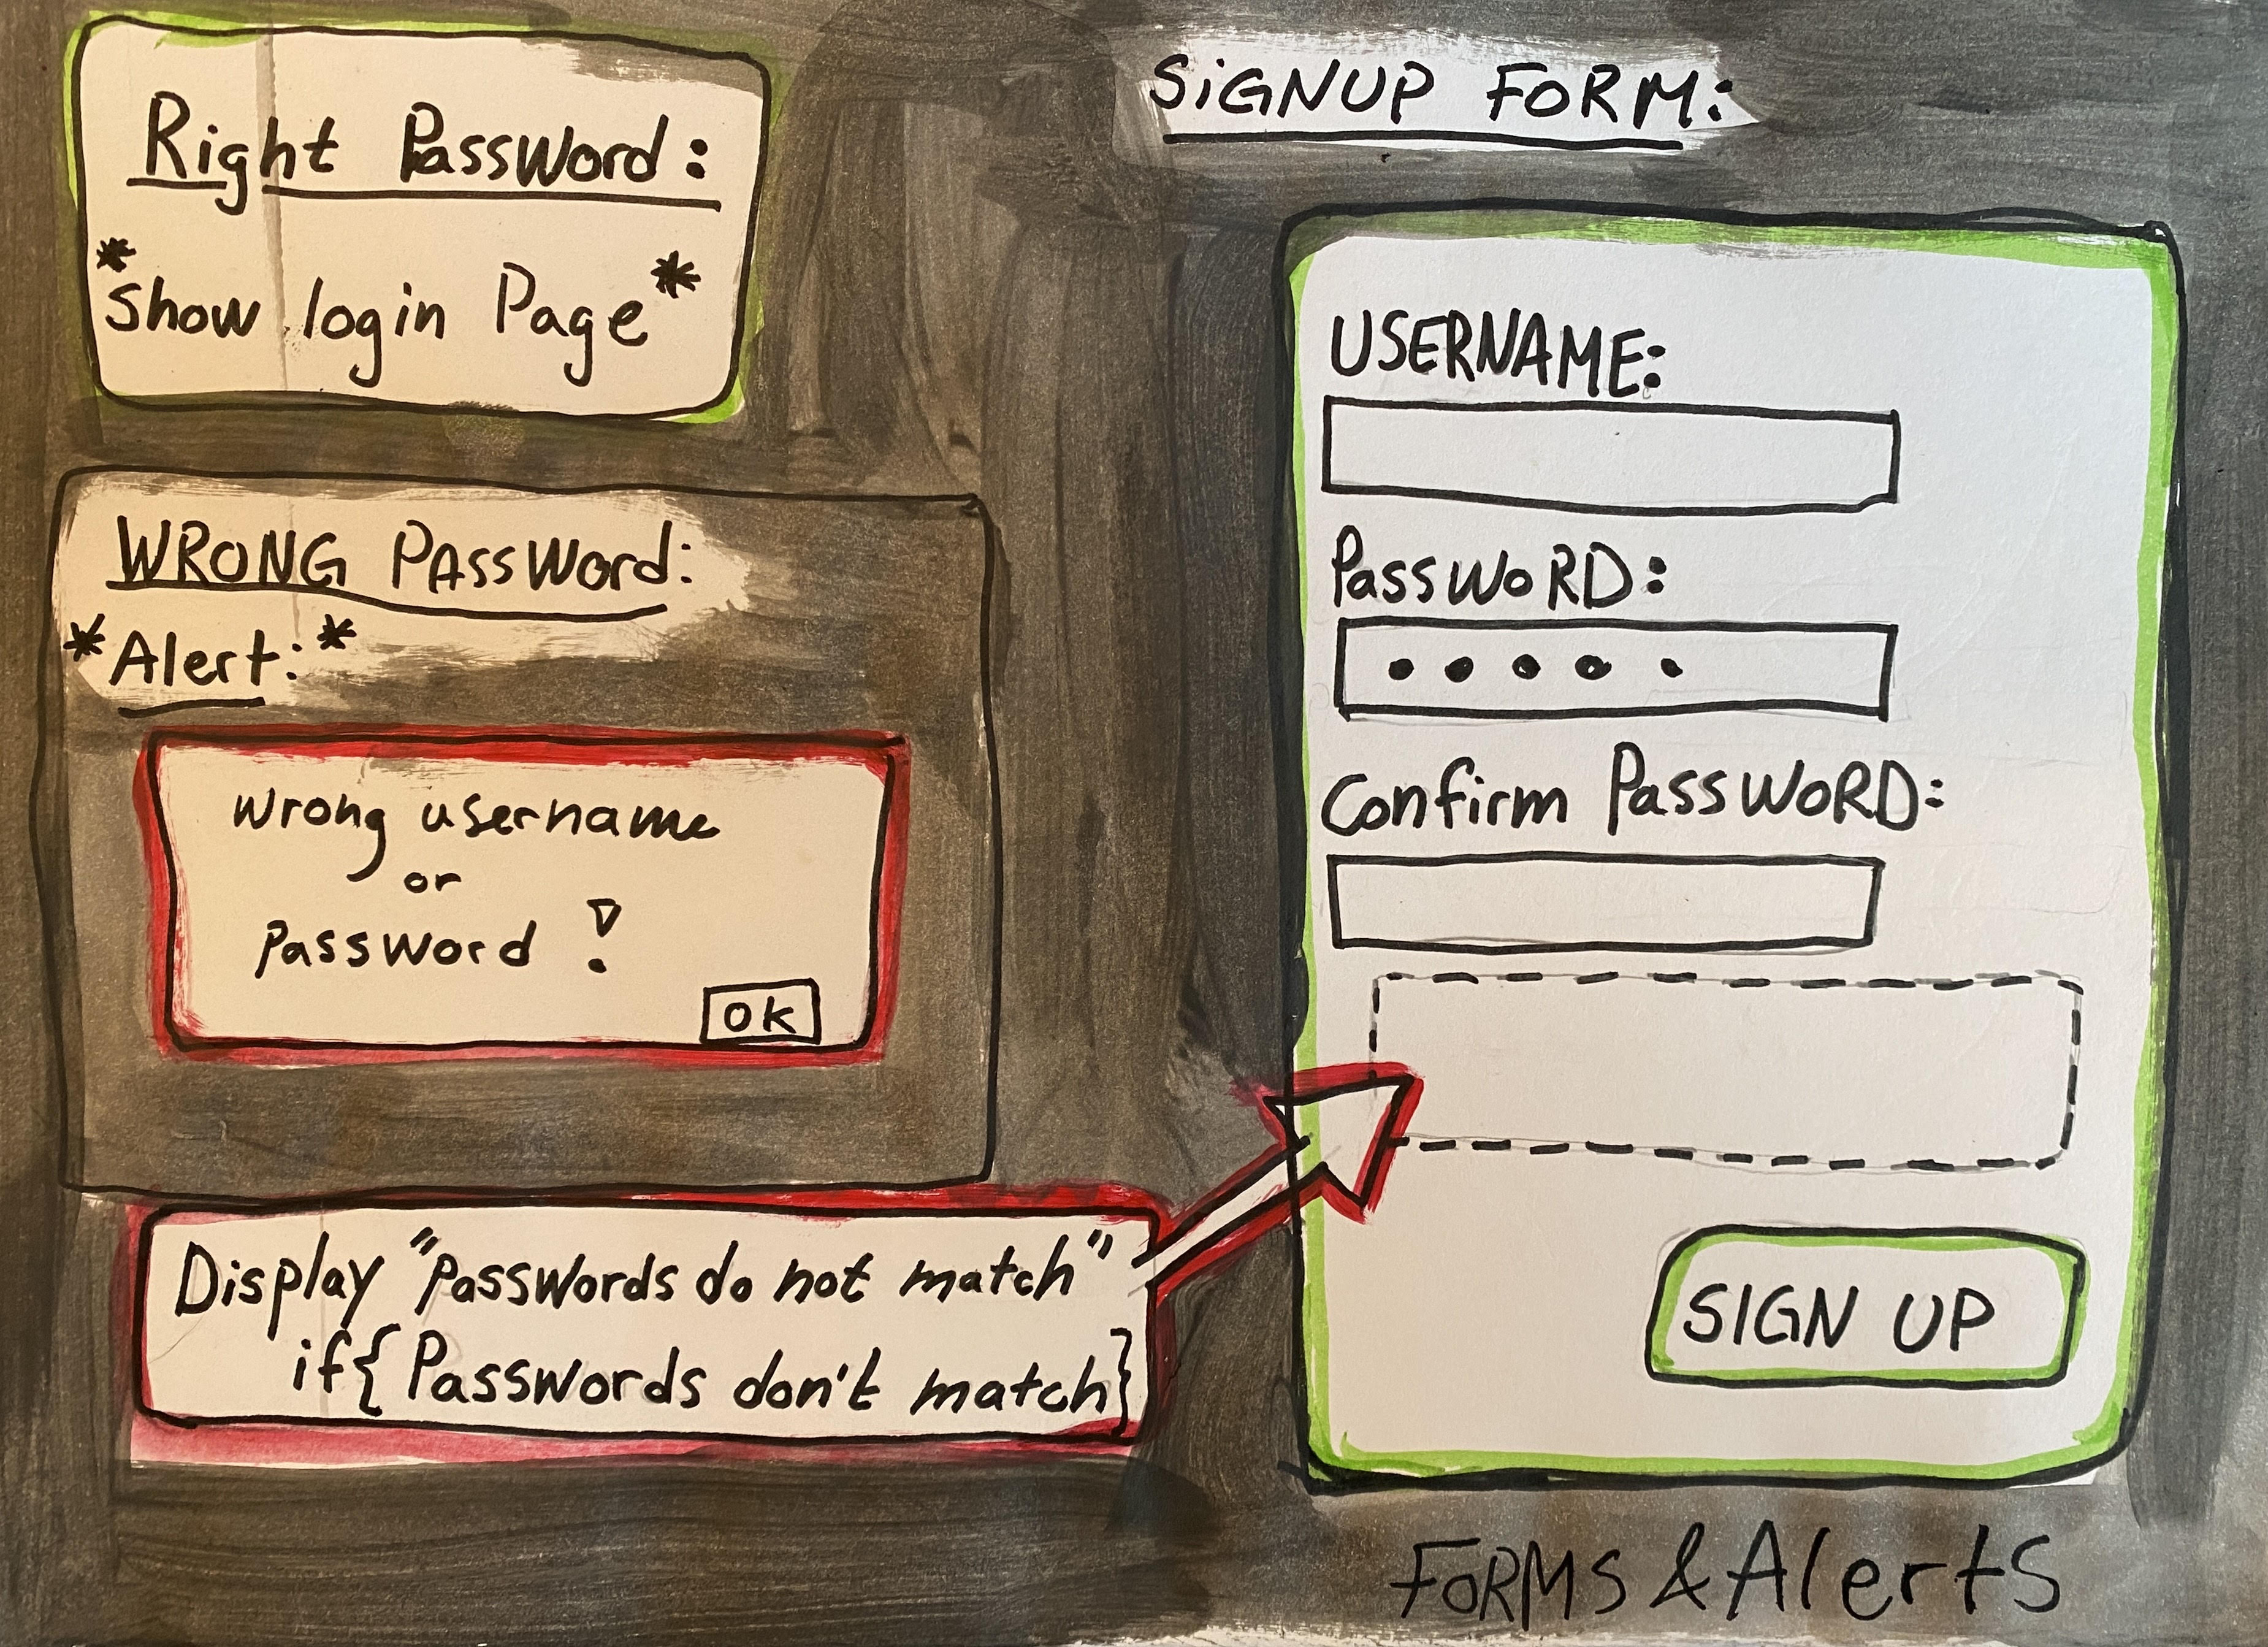 Right Password:
*Show login Page*
WRONG PAssword:
*Alert:*
wrong username
or
password !
OK
Display "Passwords do not match"
if{Passwords don't match}
SiGNUP FORM:
USERNAME:
PassWoRD:
Confirm PassWoRD:
SIGN UP
FoRMS & Alerts